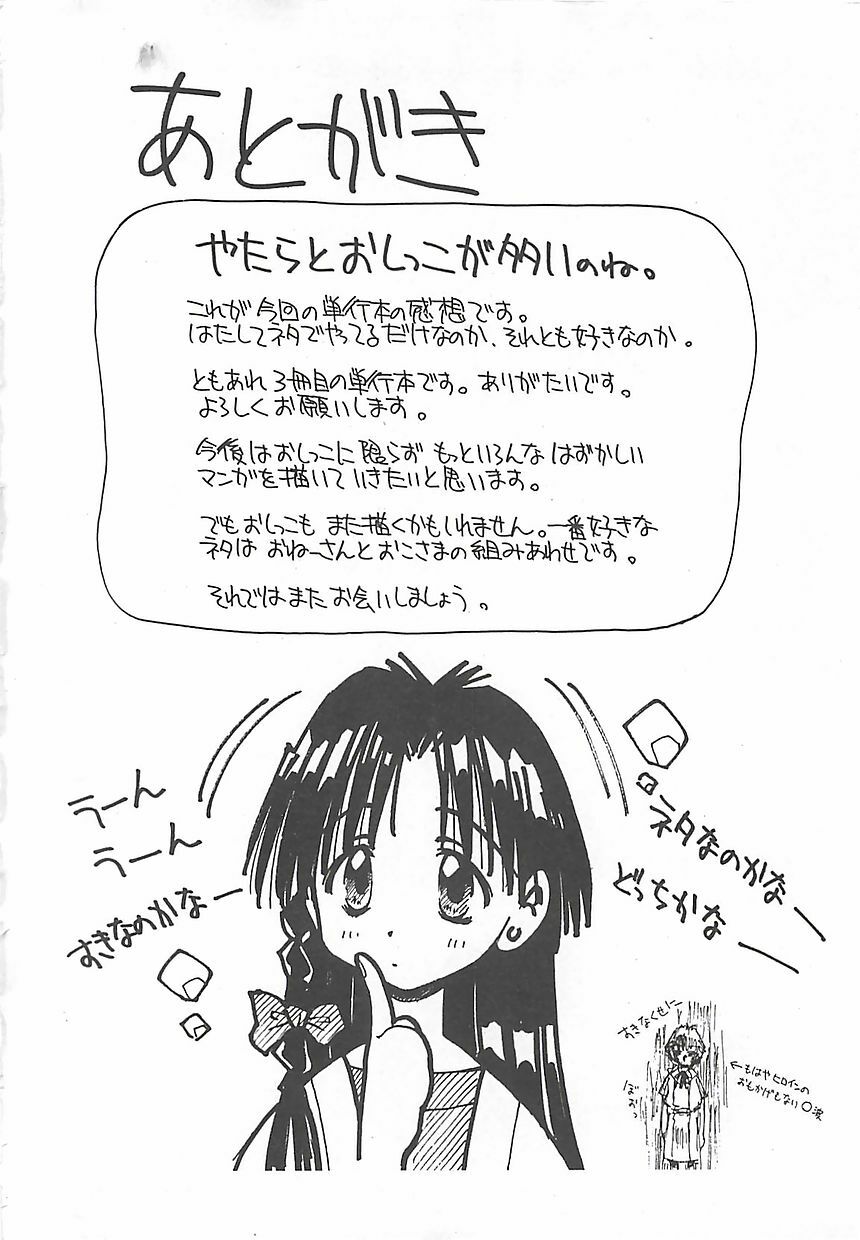 あとがき
やたらとおしっこが多いのね。
これが今回の単行本の感想です。
はたしてネタでやってるだけなのか、それとも好きなのか。
ともあれ3冊目の単行本です。ありがたいです。
よろしくお願いします。
今後はおしっこに限らず もっといろんな はずかしい
マンガを描いていきたいと思います。
でもおしっこも また描くかもしれません。一番好きな
ネタは おねーさんとおこさまの組みあわせです。
それではまたお会いしましょう。
うーん
うーん
すきなのかなー
ネタなのかなー
どっちかなー
すきなくせにー
ぼおっ
←もはやヒロインの
おもかげもない〇波